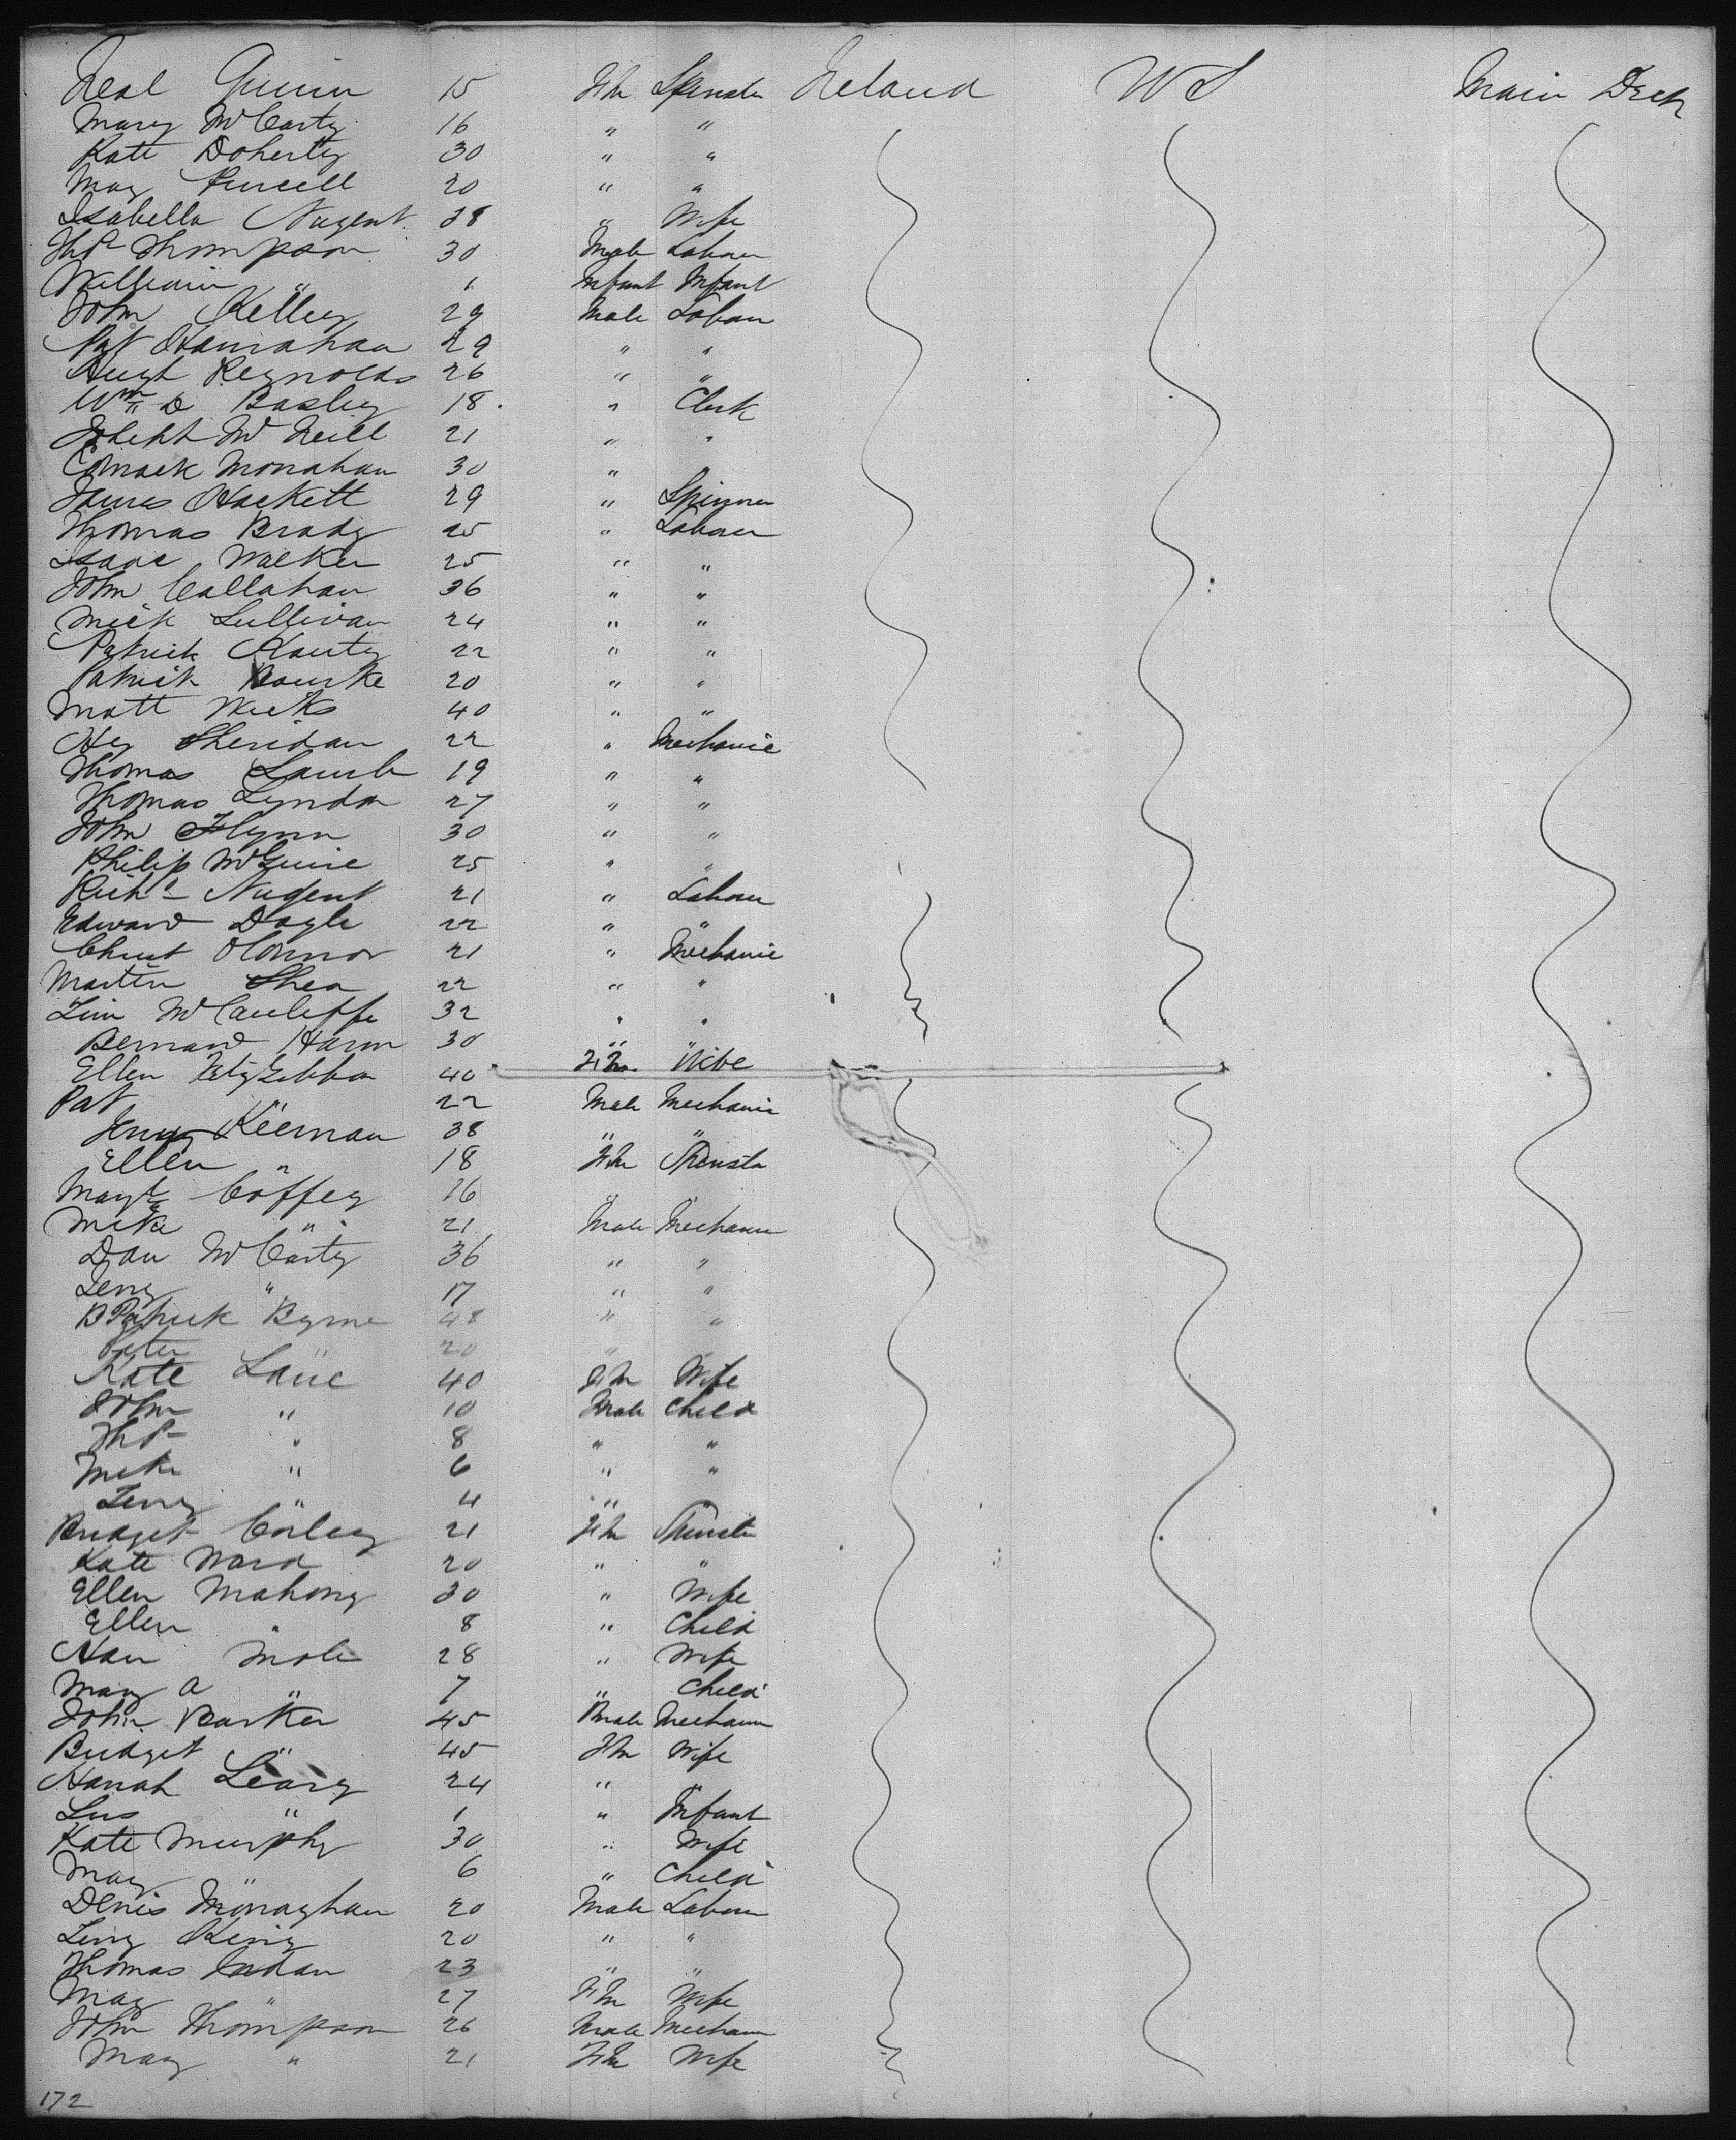 Neal Quinn 15 Fem Spinster Ireland U S Main Deck
Mary McCarty 16 " "
Kate Doherty 30 " "
May Purcell 20 " "
Isabella Nugent 28 " Wife
Thos Thompson 30 Male Labour
William " 1 Infant Infant
John Kelley 29 Male Labour
Pat Hanrahan 29 " "
Hugh Reynolds 26 " "
Wm D Basley 18 " Clerk
McNeill 21 " "
Comack Monahan 30 "
James Hackett 29 " Spinner
Thomas Brady 25 " Labour
Isaac Walker 25 " "
John Callahan 36 " "
Mick Sullivan 24 " "
Patrick 22 " "
Patrick Bourke 20 " "
Matt Weeks 40 " "
Hy Sheridan 22 " Mechanic
Thomas Lamb 19 " "
Thomas Lyndon 27 " "
John Flynn 30 " "
Philip McGuire 25 " "
Richd Nugent 21 " Labour
Edward Doyle 22 " "
Christ OConnor 21 " Mechanic
Martin Shea 22 " "
Tim McCauleffe 32 " "
Bernard Harm 30 " "
Ellen FitzGibbon 40 Fem Wife
Pat " 22 Male Mechanic
Henry Keernan 38 " "
Ellen " 18 Fem Spinster
Mayt Coffey 16 " "
Mike " 21 Male Mechanic
Dan McCarty 36 " "
Jerry " 17 " "
Patrick Byrne 48 " "
Peter " 20 "
Kate Lane 40 Fem Wife
John " 10 Male Child
Thos " 8 " "
Mike " 6 " "
Jerry " 4 " "
Bridget Corley 21 Fem Spinster
Kate Ward 20 " "
Ellen Mahony 30 " Wife
Ellen " 8 " Child
Han Mole 28 " Wife
Mary A " 7 " Child
John Barker 45 Male Mechanic
Bridget " 45 Fem Wife
Hanah Leary 24 " "
" 1 " Infant
Kate Murphy 30 " Wife
May " 6 " Child
Denis Monaghan 20 Male Labour
King 20 " "
Thomas 23 " "
May " 27 Fem Wife
John Thompson 26 Male Mechan
May " 21 Fem Wife
172